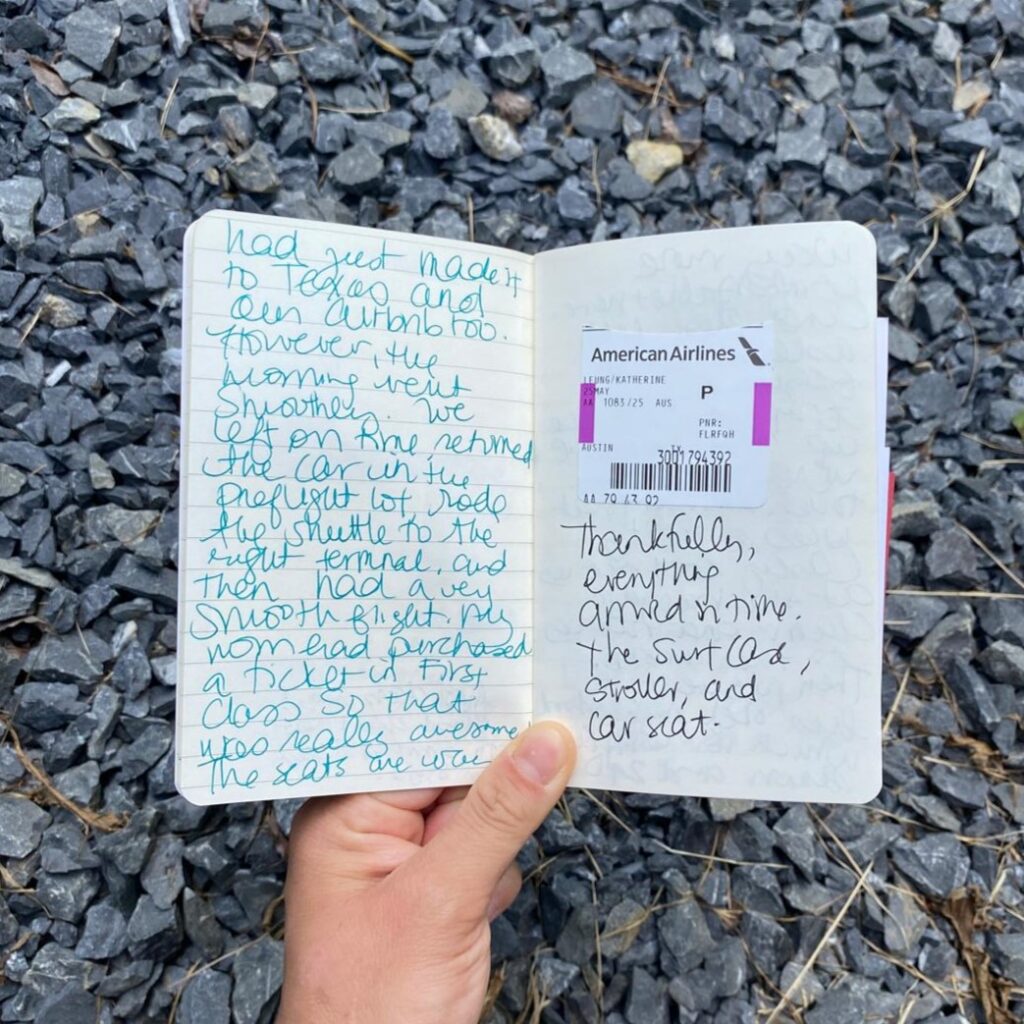 had just made it
to Texas and
our airbnb too.
However, the
morning went
smoothly. We
left on time, returned
the car in the
preflight lot, rode
the shuttle to the
right terminal, and
then had a very
smooth flight. My
mom had purchased
a ticket in First
Class so that
was really awesome
The seats are way
American Airlines
LEUNG/KATHERINE
25MAY
P
AA 1083/25 AUS
PNR:
FLRFQH
AUSTIN TX
3001794392
AA 79 43 92
Thankfully,
everything
arrived in time.
The suitcase,
stroller, and
car seat.